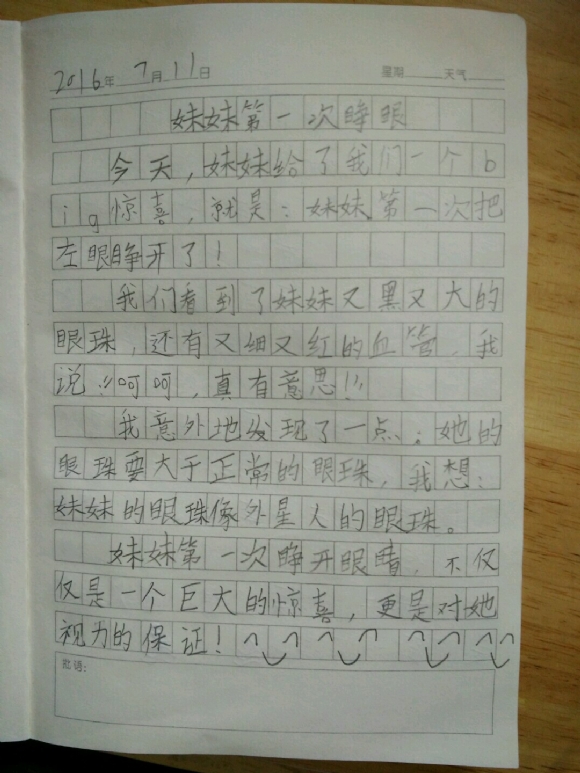 2016年 7月11日 星期 天气
妹妹第一次睁眼
今天，妹妹给了我们一个b
ig惊喜，就是：妹妹第一次把
左眼睁开了！
我们看到了妹妹又黑又大的
眼珠，还有又细又红的血管，我
说：“呵呵，真有意思！”
我意外地发现了一点：她的
眼珠要大于正常的眼珠，我想：
妹妹的眼珠像外星人的眼珠。
妹妹第一次睁开眼睛，不仅
仅是一个巨大的惊喜，更是对她
视力的保证！
批语：